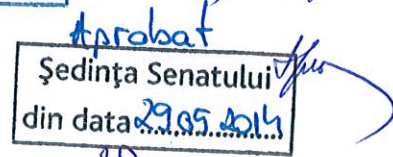 Aprobat
Şedinţa Senatului
din data 29.05.2014